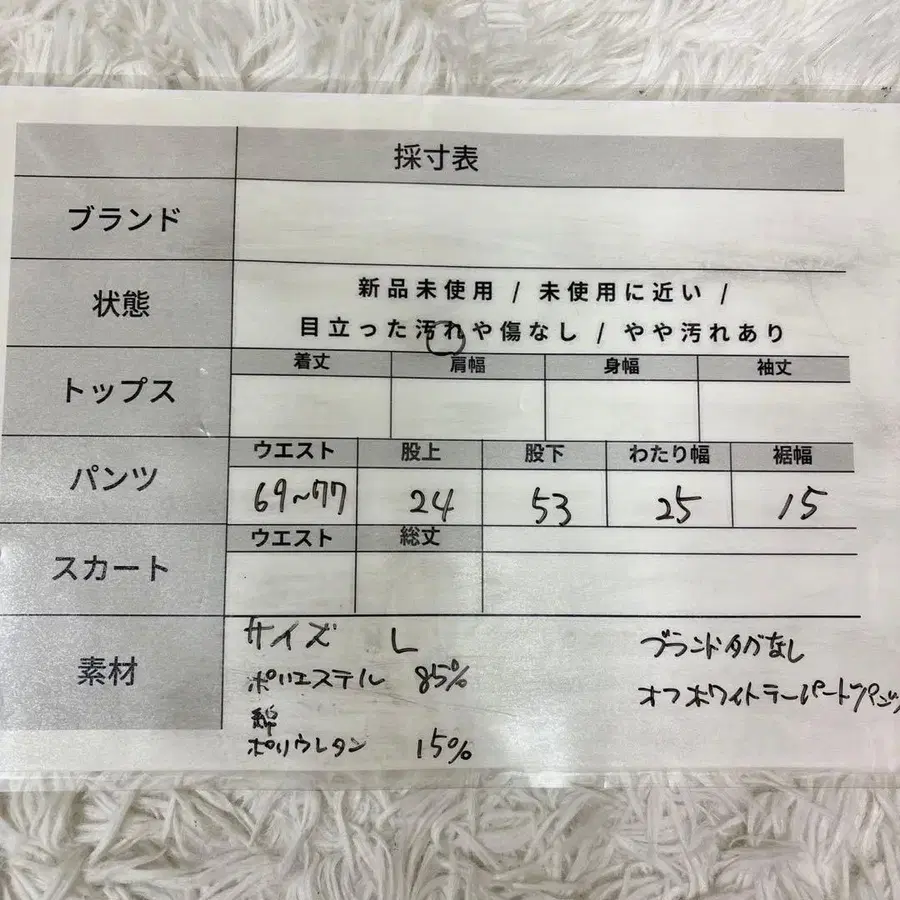 採寸表
ブランド
状態
新品未使用 / 未使用に近い /
目立った汚れや傷なし / やや汚れあり
トップス
着丈 肩幅 身幅 袖丈
パンツ
ウエスト 股上 股下 わたり幅 裾幅
69~77 24 53 25 15
スカート
ウエスト 総丈
素材
サイズ L
ポリエステル 85%
綿
ポリウレタン 15%
ブランドタグなし
オフホワイトテーパードパンツ